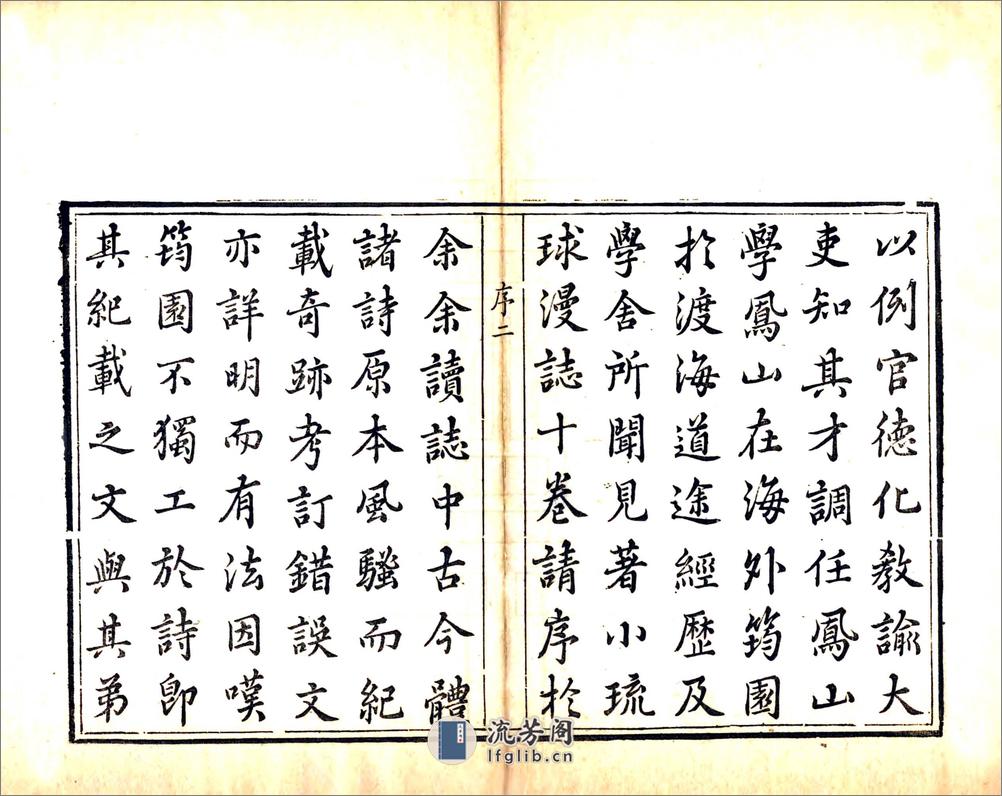 以例官德化教諭大
吏知其才調任鳳山
學鳳山在海外筠園
於渡海道途經歷及
學舍所聞見著小琉
球漫誌十卷請序於
序二
余余讀誌中古今體
諸詩原本風騷而紀
載奇跡考訂錯誤文
亦詳明而有法因嘆
筠園不獨工於詩卽
其紀載之文與其弟
流芳阁
lfglib.cn